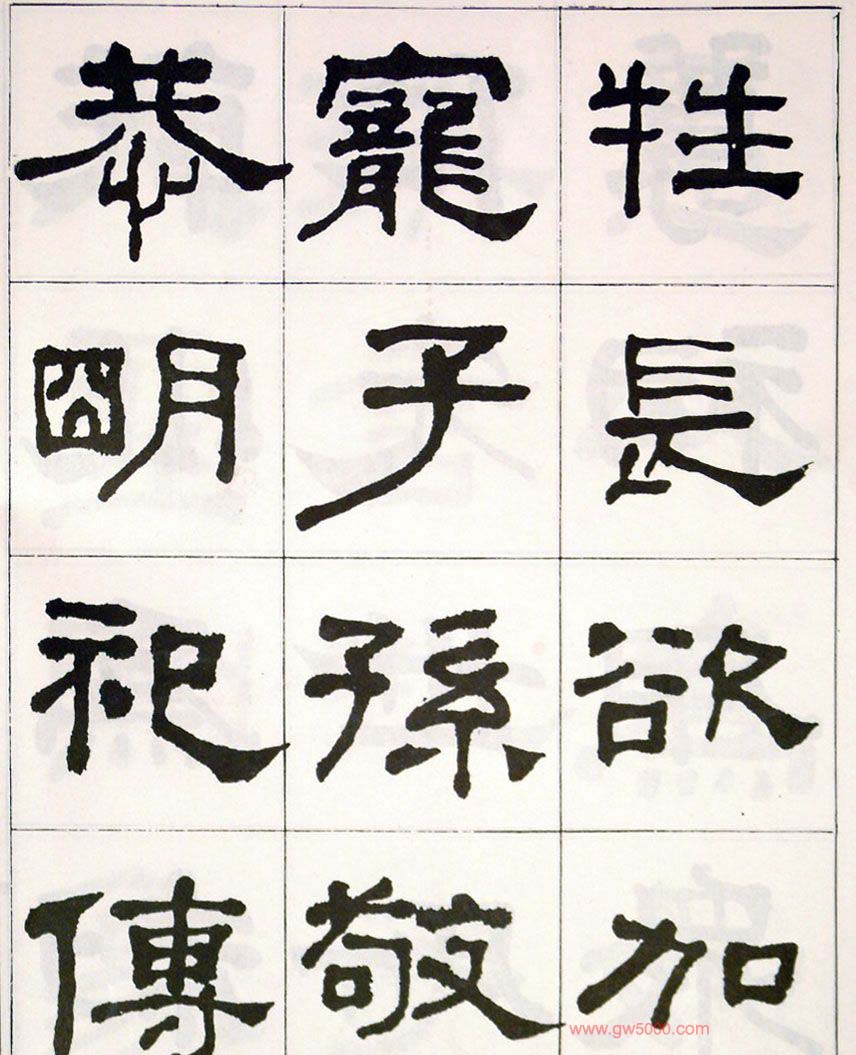 牲長欲加
寵子孫敬
恭明祀傳
www.gw5000.com